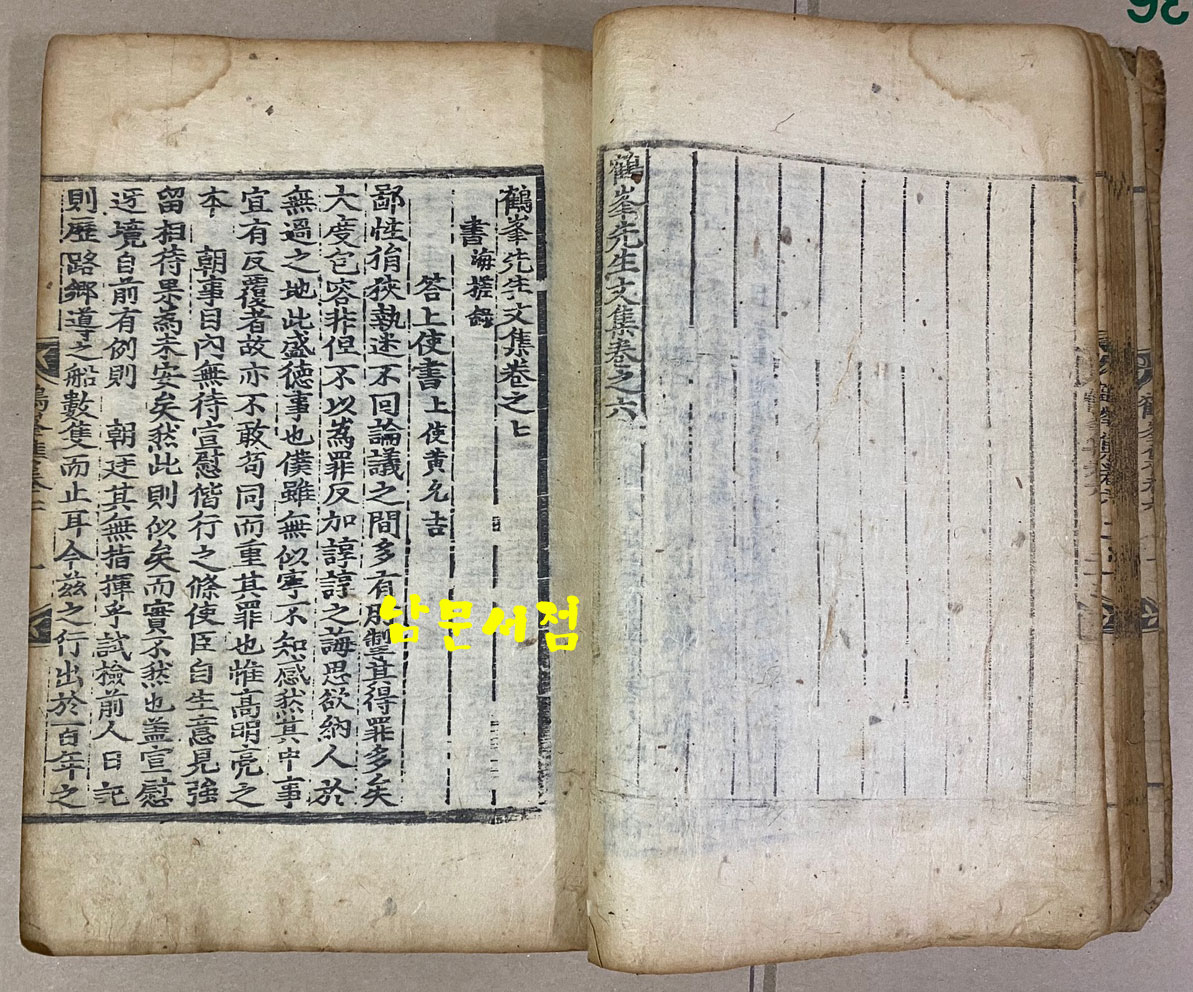 鶴峯先生文集卷之六
鶴峯先生文集卷之七
書 海槎錄
答上使書 上使黃允吉
鄙性狷狹執迷不回論議之間多有肘掣其得罪多矣
大度包容非但不以爲罪反加諄諄之誨思欲納人於
無過之地此盛德事也僕雖無似寧不知感然其中事
宜有反覆者故亦不敢苟同而重其罪也惟高明亮之
本 朝事目內無待宣慰偕行之條使臣自生意見強
留相待果爲未安矣然此則似矣而實不然也盖宣慰
迎境自前有例則 朝廷其無指揮乎試檢前人日記
則歷路鄕導之船數隻而止耳今玆之行出於百年之
남문서점